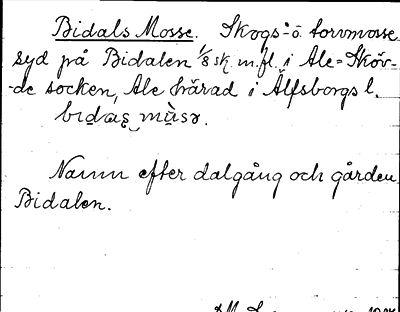 Bidals Mosse. Skogs- o. torvmosse
syd på Bidalen 1/8 sk. m.fl. i Ale-Sköv-
-de socken, Ale härad i Älfsborgs l.

Namn efter dalgång och gården
Bidalen.